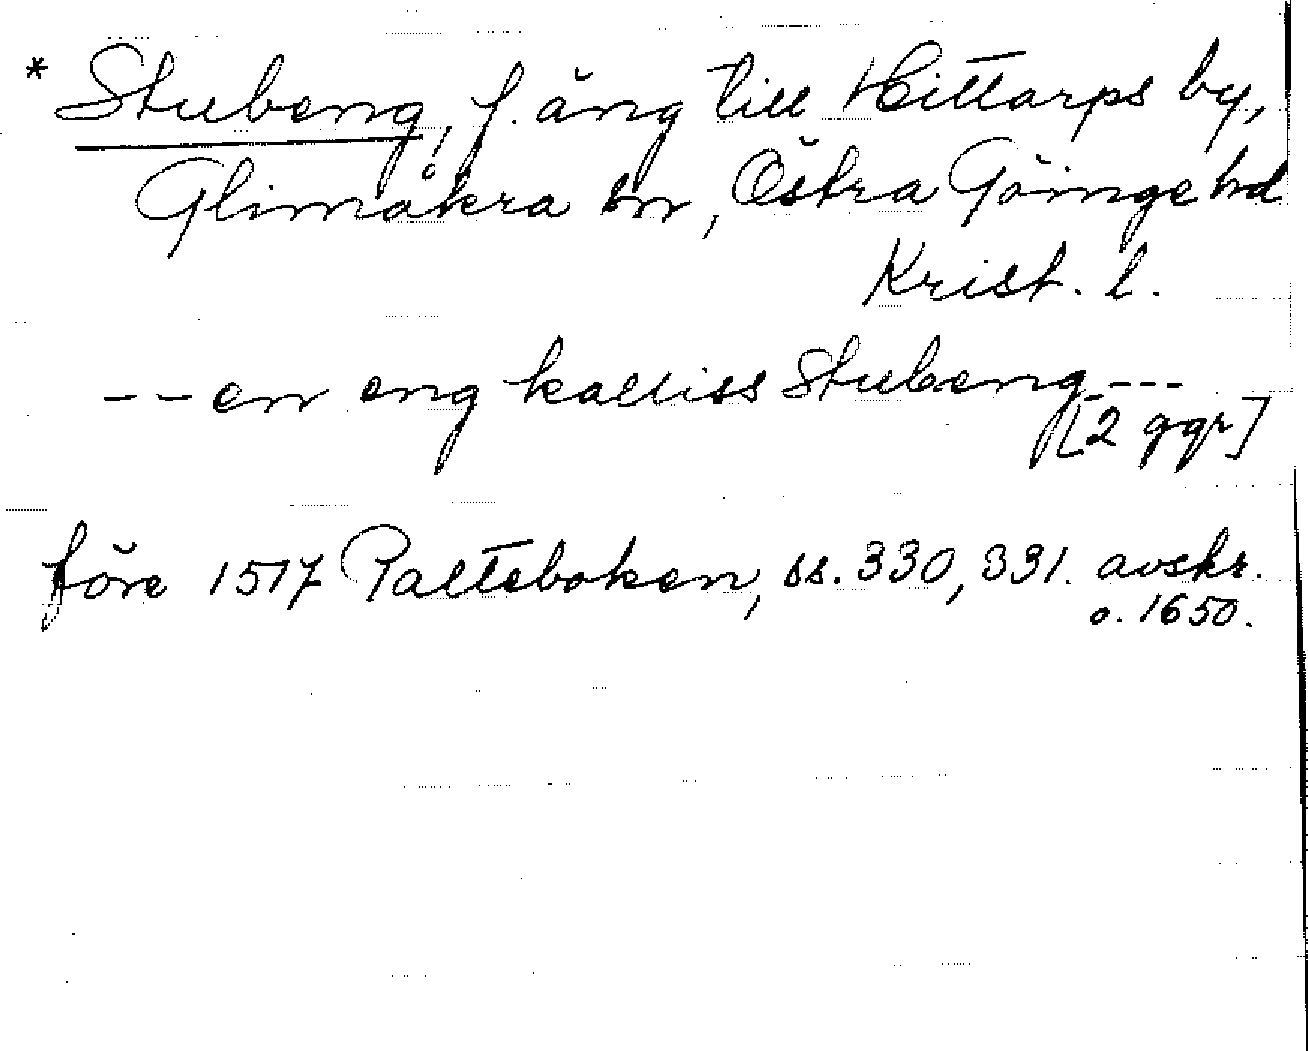 * Stubeng, f. äng till Hittarps by,
Glimåkra sn, Östra Göinge hd
Krist. l.
-- en eng kalliss Stubeng ---
[2 ggr]
före 1517 Palteboken, ss. 330, 331. avskr.
o. 1650.